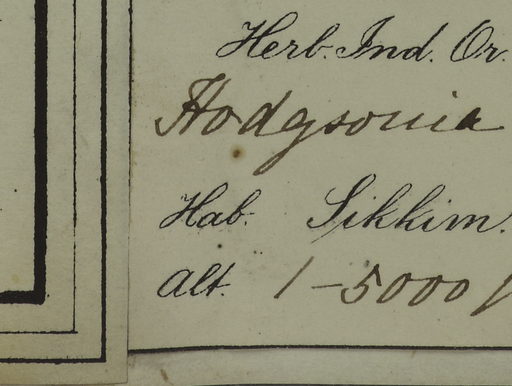 Herb. Ind. Or.
Hodgsonia
Hab. Sikkim.
Alt. 1-5000